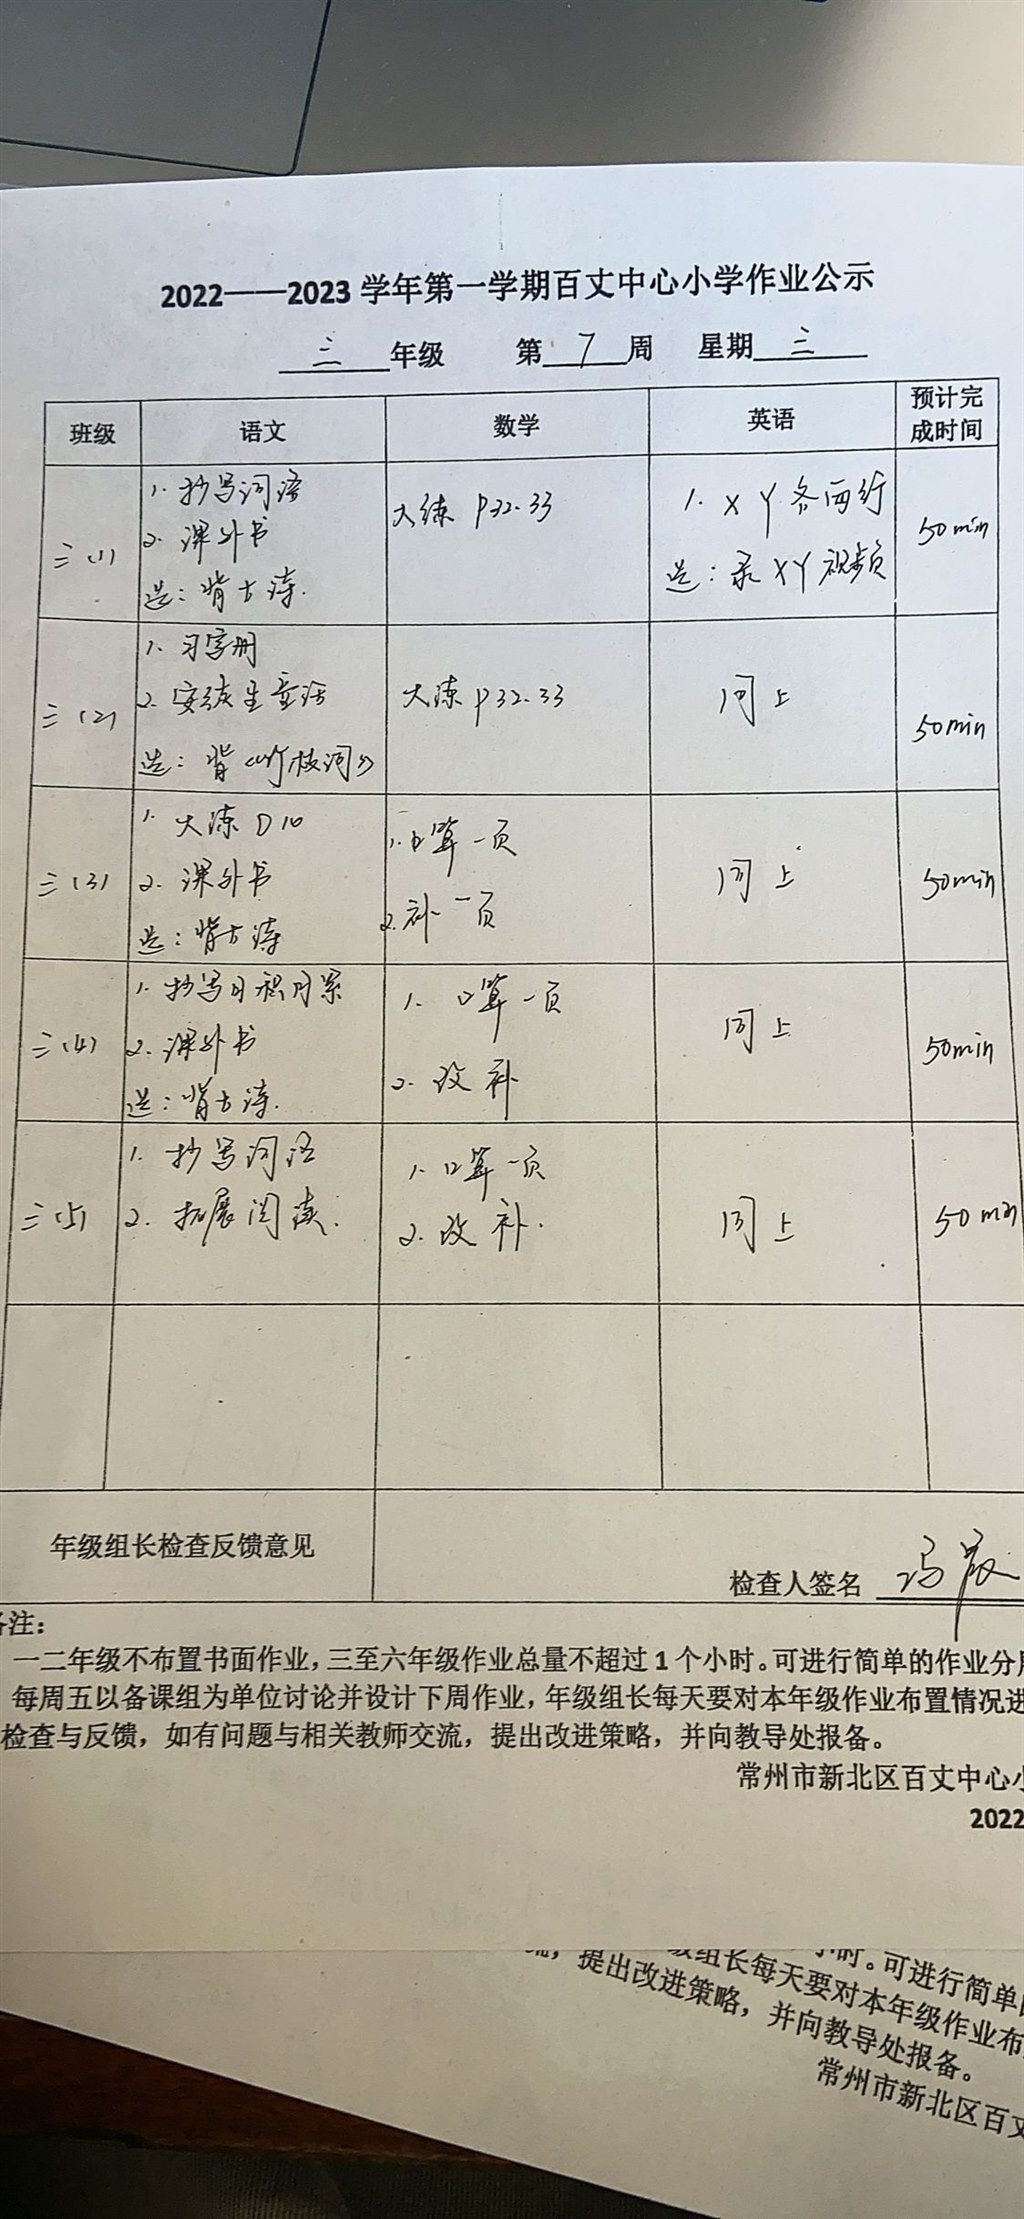 2022——2023 学年第一学期百丈中心小学作业公示
三 年级 第 7 周 星期 三
班级 语文 数学 英语 预计完成时间
三(1)
1. 抄写词语
2. 课外书
选：背古诗.
大练 P32.33
1. X Y 各两行
选：录 XY 视频
50min
三(2)
1. 习字册
2. 安徒生童话
选：背《竹枝词》
大练 P32.33
同上
50min
三(3)
1. 大练 D10
2. 课外书
选：背古诗
1. 口算一页
2. 补一页
同上
50min
三(4)
1. 抄写日积月累
2. 课外书
选：背古诗.
1. 口算一页
2. 改补
同上
50min
三(5)
1. 抄写词语
2. 拓展阅读.
1. 口算一页
2. 改补.
同上
50min
年级组长检查反馈意见
检查人签名 冯
备注：
一二年级不布置书面作业，三至六年级作业总量不超过 1 个小时。可进行简单的作业分
每周五以备课组为单位讨论并设计下周作业，年级组长每天要对本年级作业布置情况进
检查与反馈，如有问题与相关教师交流，提出改进策略，并向教导处报备。
常州市新北区百丈中心小
2022
级组长每天要对本年级作业布
小时。可进行简单
提出改进策略，并向教导处报备。
常州市新北区百丈